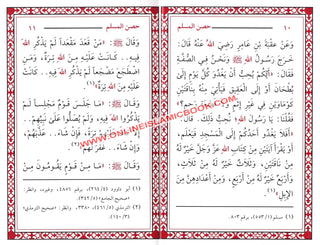 ١٠
حصن المسلم
وَعَنْ عُقْبَةَ بْنِ عَامِرٍ رَضِيَ اللهُ عَنْهُ قَالَ:
خَرَجَ رَسُولُ اللهِ ﷺ وَنَحْنُ فِي الصُّفَّةِ
فَقَالَ: «أَيُّكُمْ يُحِبُّ أَنْ يَغْدُوَ كُلَّ يَوْمٍ إِلَى
بُطْحَانَ أَوْ إِلَى الْعَقِيقِ فَيَأْتِيَ مِنْهُ بِنَاقَتَيْنِ
كَوْمَاوَيْنِ فِي غَيْرِ إِثْمٍ وَلَا قَطِيعَةِ رَحِمٍ؟»
فَقُلْنَا: يَا رَسُولَ اللهِ نُحِبُّ ذَلِكَ. قَالَ:
«أَفَلَا يَغْدُو أَحَدُكُمْ إِلَى الْمَسْجِدِ فَيَعْلَمَ،
أَوْ يَقْرَأَ آيَتَيْنِ مِنْ كِتَابِ اللهِ عَزَّ وَجَلَّ خَيْرٌ لَهُ
مِنْ نَاقَتَيْنِ، وَثَلَاثٌ خَيْرٌ لَهُ مِنْ ثَلَاثٍ،
وَأَرْبَعٌ خَيْرٌ لَهُ مِنْ أَرْبَعٍ، وَمِنْ أَعْدَادِهِنَّ مِنَ
الْإِبِلِ»(١)
(١) مسلم (١/٥٥٣)، برقم ٨٠٣.
حصن المسلم
١١
وَقَالَ ﷺ: «مَنْ قَعَدَ مَقْعَداً لَمْ يَذْكُرِ اللهَ
فِيهِ.. كَانَتْ عَلَيْهِ مِنَ اللهِ تِرَةٌ، وَمَنِ
اضْطَجَعَ مَضْجَعاً لَمْ يَذْكُرِ اللهَ فِيهِ.. كَانَتْ
عَلَيْهِ مِنَ اللهِ تِرَةٌ»(١)
وَقَالَ ﷺ: «مَا جَلَسَ قَوْمٌ مَجْلِساً لَمْ
يَذْكُرُوا اللهَ فِيهِ، وَلَمْ يُصَلُّوا عَلَى نَبِيِّهِمْ..
إِلَّا كَانَ عَلَيْهِمْ تِرَةً، فَإِنْ شَاءَ.. عَذَّبَهُمْ،
وَإِنْ شَاءَ.. غَفَرَ لَهُمْ»(٢)
وَقَالَ ﷺ: «مَا مِنْ قَوْمٍ يَقُومُونَ مِنْ
(١) أبو داود (٤/٢٦٤)، برقم ٤٨٥٦، وغيره، وانظر:
«صحيح الجامع» (٥/٣٤٢)
(٢) الترمذي (٥/٤٦١)، ٣٣٨٠، وانظر: «صحيح الترمذي»
(٣/١٤٠).
WWW.ONLINEISLAMICBOOK.COM